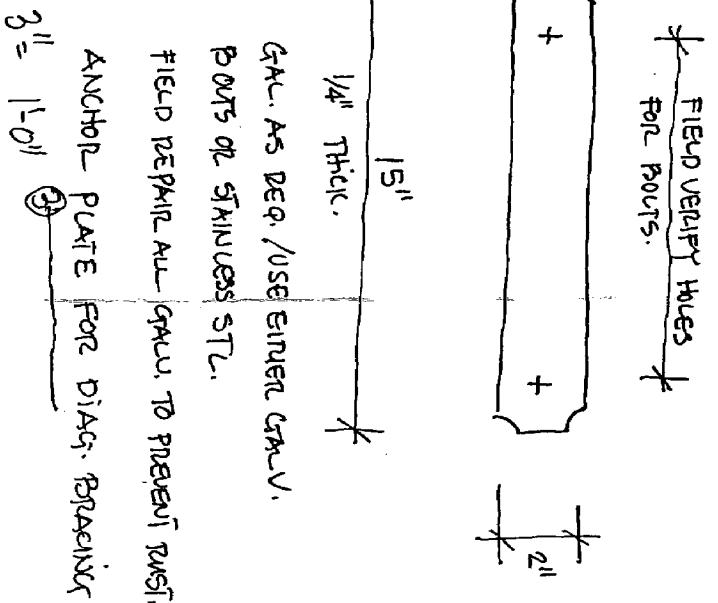 FIELD VERIFY HOLES
FOR BOLTS.
2"
15"
1/4" THICK.
GAL. AS REQ. / USE EITHER GALV.
BOLTS OR STAINLESS STL.
FIELD REPAIR ALL GALV. TO PREVENT RUST.
ANCHOR PLATE FOR DIAG. BRACING
3" = 1'-0" 3